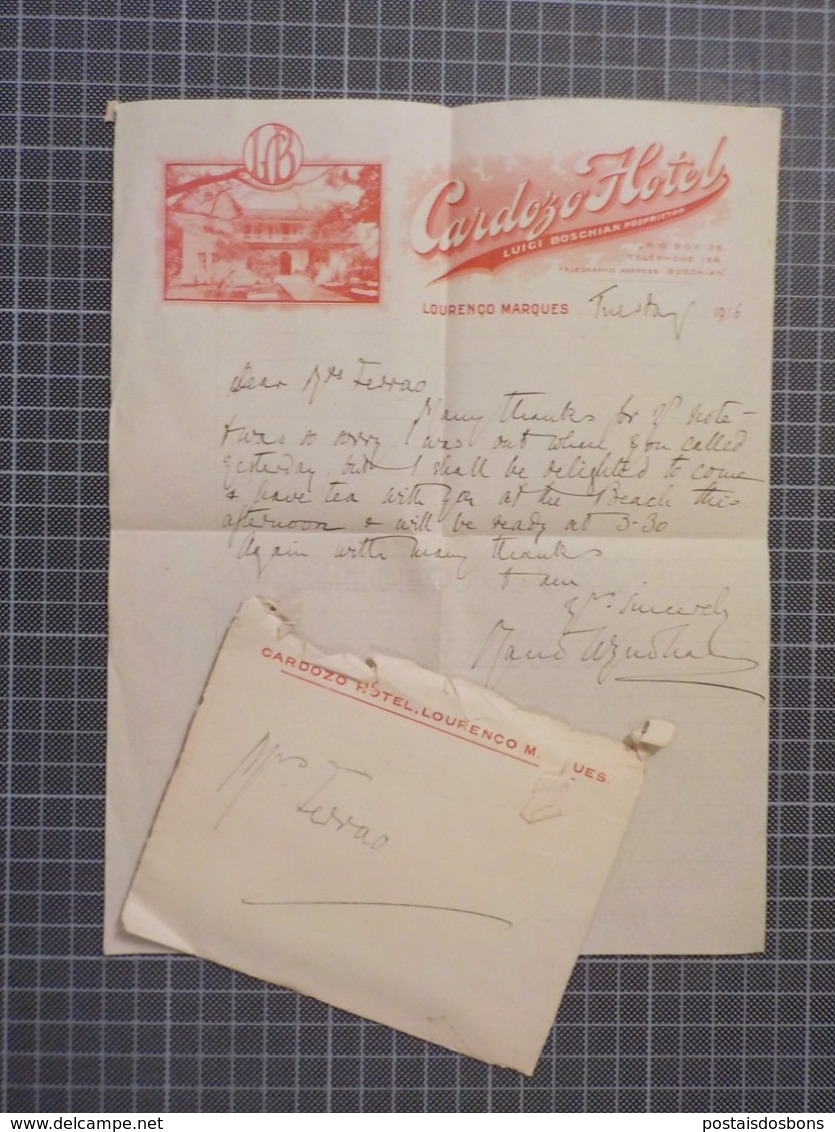 LB
Cardozo Hotel
LUIGI BOSCHIAN PROPRIETOR
P.O BOX 26
TELEPHONE
TELEGRAPHIC ADDRESS: BOSCHIAN
LOURENÇO MARQUES Tuesday 1916
Dear Mrs Ferrao
Many thanks for yr note -
I was so sorry I was out when you called
yesterday but I shall be delighted to come
& have tea with you at the Beach this
afternoon & will be ready at 3-30
Again with many thanks
I am
yrs sincerely
CARDOZO HOTEL, LOURENÇO M UES.
Mrs Ferrao
postaisdosbons